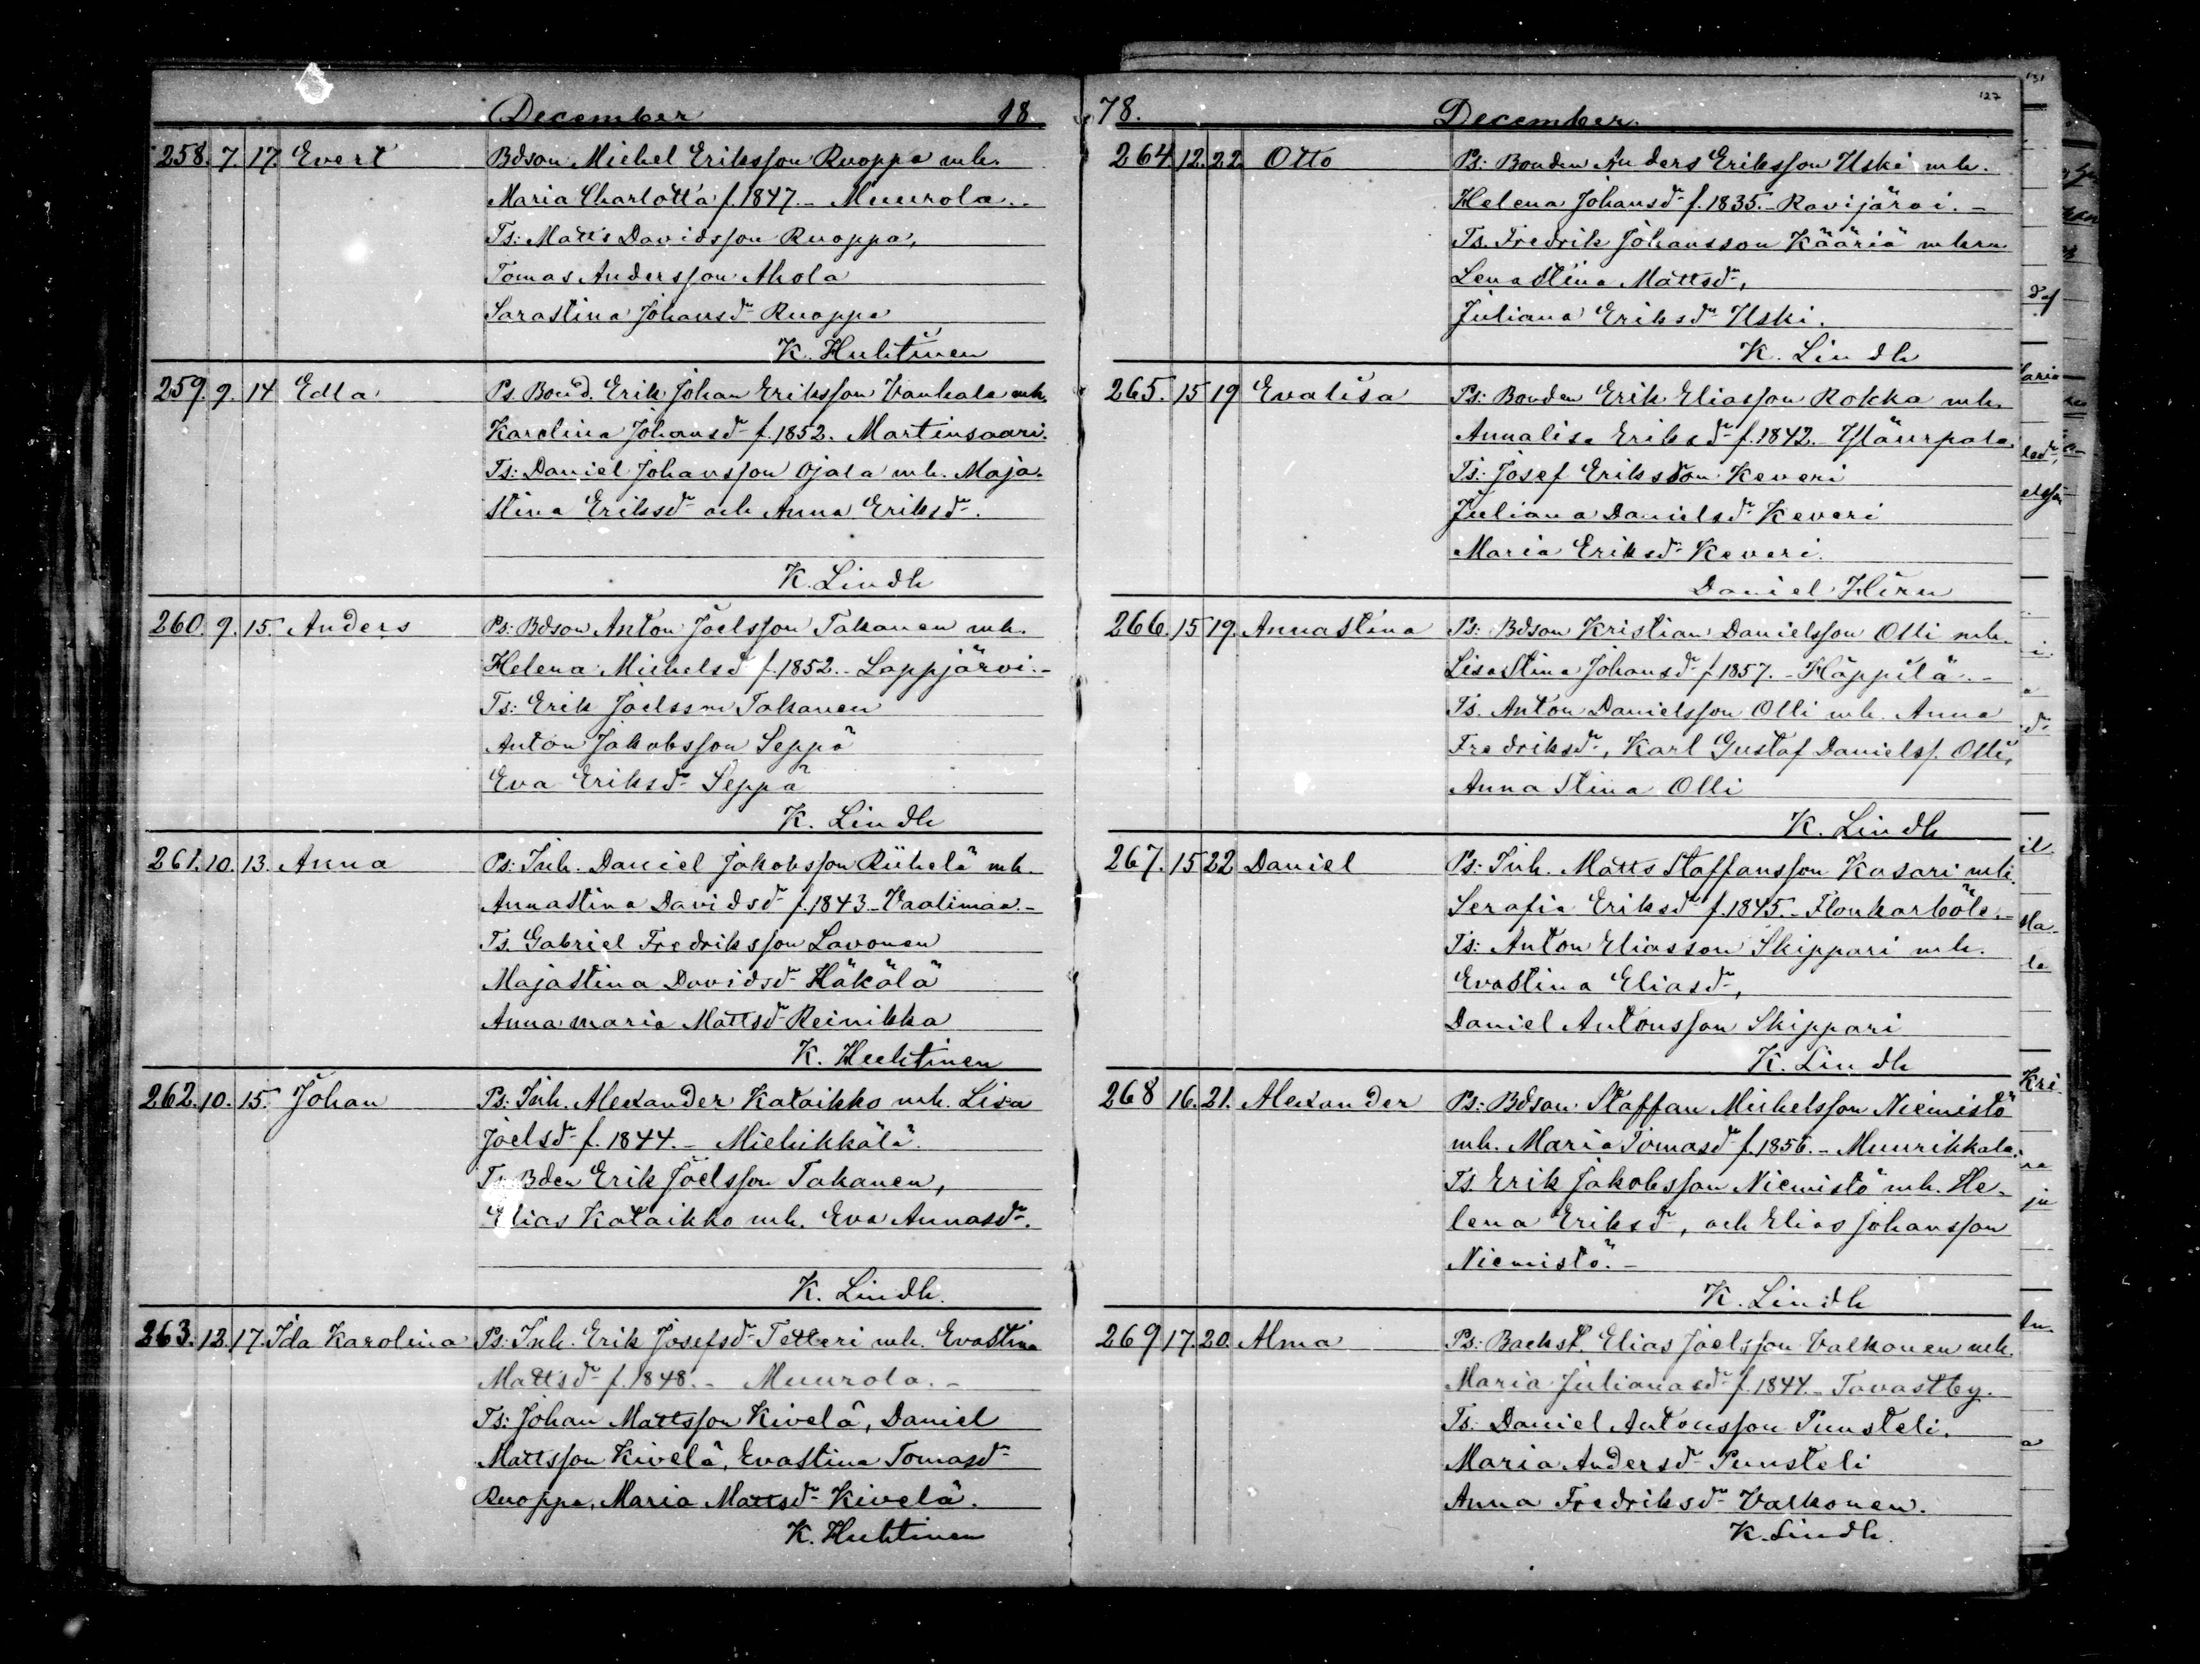 December 18
258. 7. 17. Evert Bdson Michel Eriksson Ruoppa mh.
Maria Charlotta f. 1847. - Muurola. -
Ts: Matts Davidsson Ruoppa,
Tomas Andersson Ahola
Sarastina Johansdr Ruoppa
K. Huhtinen
259. 9. 14 Edla Ps. Bond. Erik Johan Eriksson Vanhala mh.
Karolina Johansdr f. 1852. Martinsaari.
Ts: Daniel Johansson Ojala mh. Maja-
stina Eriksdr och Anna Eriksdr.
K. Lindh
260. 9. 15. Anders Ps: Bdson Anton Joelsson Takanen mh.
Helena Michelsd f. 1852. - Lappjärvi. -
Ts: Erik Joelsson Takanen
Anton Jakobsson Seppä
Eva Eriksdr Seppä
K. Lindh
261. 10. 13. Anna Ps: Inh. Daniel Jakobsson Riihelä mh.
Annastina Davidsdr f. 1843. - Vaalimaa. -
Ts. Gabriel Fredriksson Lavonen
Majastina Davidsdr Häkälä
Anna maria Mattsdr Reinikka
K. Huhtinen
262. 10. 15. Johan Ps: Inh. Alexander Kataikko mh. Lisa
Joelsdr f. 1844. - Miehikkälä.
Ts. Bden Erik Joelsson Takanen,
Elias Kataikko mh. Eva Annasdr.
K. Lindh.
263. 12. 17. Ida Karolina Ps: Inh. Erik Josefsdr Tetteri mh. Evastina
Mattsdr f. 1848. - Muurola. -
Ts: Johan Mattsson Kivelä, Daniel
Mattsson Kivelä, Evastina Tomasdr
Ruoppa, Maria Mattsdr Kivelä.
K. Huhtinen
78. December. 127
264. 12. 22. Otto Ps: Bonden Anders Eriksson Uski mh.
Helena Johansdr f. 1835. - Ravijärvi. -
Ts. Fredrik Johansson Kääriä mhru
Lenastina Mattsdr,
Juliana Eriksdr Uski.
K. Lindh
265. 15 19 Evalisa Ps: Bonden Erik Eliasson Rokka mh.
Annalisa Eriksdr f. 1842. - Yläurpala.
Ts: Josef Eriksson Keveri
Juliana Danielsdr Keveri
Maria Eriksdr Keveri.
Daniel Hirn
266. 15 19. Annastina Ps: Bdson Kristian Danielsson Olli mh.
Lisastina Johansdr f. 1857. - Häppilä. -
Ts. Anton Danielsson Olli mh. Anna
Fredriksdr, Karl Gustaf Danielss. Olli,
Anna Stina Olli
K. Lindh
267. 15 22 Daniel Ps: Inh. Matts Staffansson Kasari mh.
Serafia Eriksdr f. 1845. - Flonkarböle. -
Ts: Anton Eliasson Skippari mh.
Evastina Eliasdr,
Daniel Antonsson Skippari
K. Lindh
268 16. 21. Alexander Ps: Bdson Staffan Michelsson Niemistö
mh. Maria Tomasdr f. 1856. - Muurikkala.
Ts. Erik Jakobsson Niemistö mh. He-
lena Eriksdr, och Elias Johansson
Niemistö. -
K. Lindh
269 17. 20. Alma Ps: Backst. Elias Joelsson Valkonen mh.
Maria Julianasdr f. 1844. - Tavastby.
Ts: Daniel Antonsson Punsteli.
Maria Andersdr Punsteli
Anna Fredriksdr Valkonen.
K. Lindh.